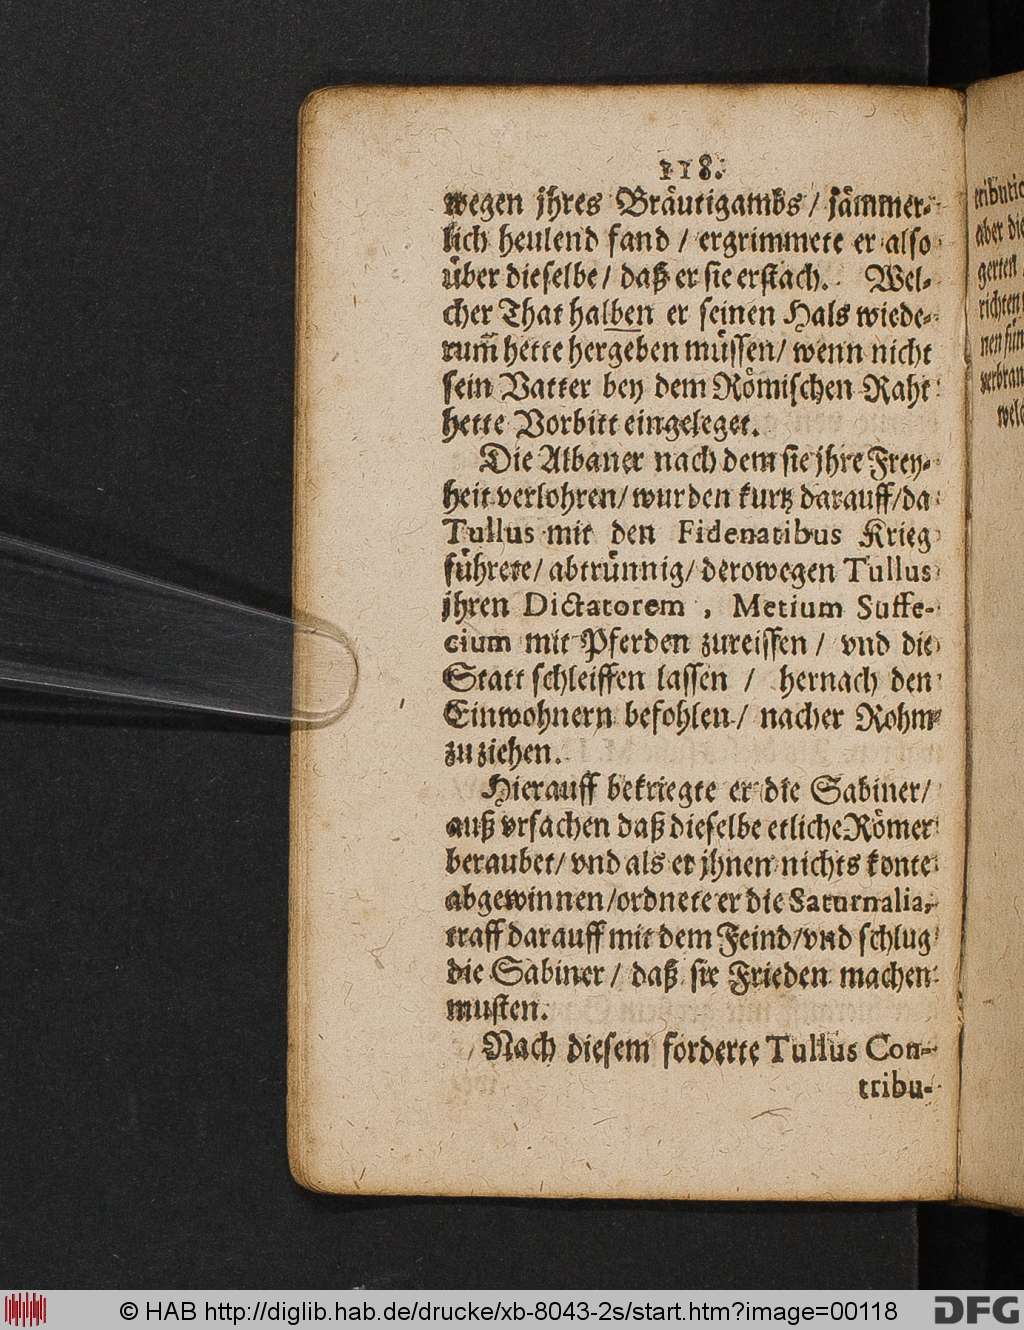 118.
wegen jhres Bräutigambs / jämmer-
lich heulend fand / ergrimmete er also
über dieselbe / daß er sie erstach. Wel-
cher That halben er seinen Hals wiede-
rum̃ hette hergeben müssen / wenn nicht
sein Vatter bey dem Römischen Raht
hette Vorbitt eingeleget.
Die Albaner nach dem sie jhre Frey-
heit verlohren / wurden kurtz darauff / da
Tullus mit den Fidenatibus Krieg
führete / abtrünnig / derowegen Tullus
jhren Dictatorem , Metium Suffe-
cium mit Pferden zureissen / vnd die
Statt schleiffen lassen / hernach den
Einwohnern befohlen / nacher Rohm
zu ziehen.
Hierauff bekriegte er die Sabiner /
auß vrsachen daß dieselbe etliche Römer
beraubet / vnd als er jhnen nichts konte
abgewinnen / ordnete er die Saturnalia,
traff darauff mit dem Feind / vnd schlug
die Sabiner / daß sie Frieden machen
musten.
Nach diesem forderte Tullus Con-
tribu-
tributio
aber die
gerten
richten
nen fün
verbran
welc
© HAB http://diglib.hab.de/drucke/xb-8043-2s/start.htm?image=00118
DFG